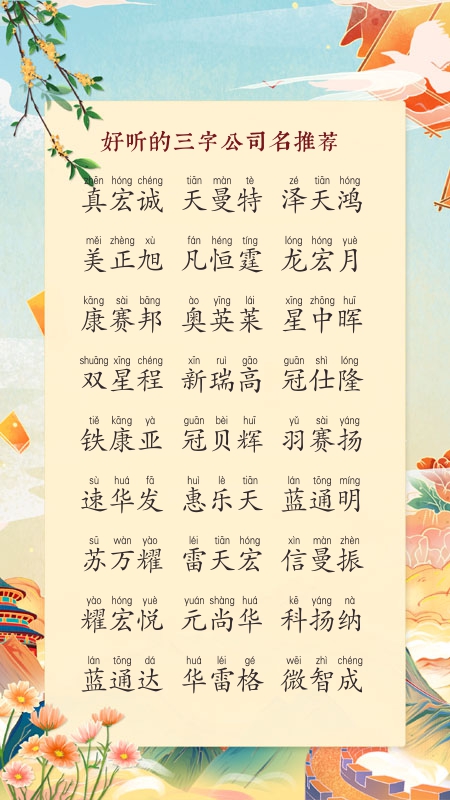 好听的三字公司名推荐
zhēn hóng chéng tiān màn tè zé tiān hóng
真宏诚 天曼特 泽天鸿
měi zhèng xù fán héng tíng lóng hóng yuè
美正旭 凡恒霆 龙宏月
kāng sài bāng ào yīng lái xīng zhōng huī
康赛邦 奥英莱 星中晖
shuāng xīng chéng xīn ruì gāo guān shì lóng
双星程 新瑞高 冠仕隆
tiě kāng yà guān bèi huī yǔ sài yáng
铁康亚 冠贝辉 羽赛扬
sù huá fā huì lè tiān lán tōng míng
速华发 惠乐天 蓝通明
sū wàn yào léi tiān hóng xìn màn zhèn
苏万耀 雷天宏 信曼振
yào hóng yuè yuán shàng huá kē yáng nà
耀宏悦 元尚华 科扬纳
lán tōng dá huá léi gé wēi zhì chéng
蓝通达 华雷格 微智成